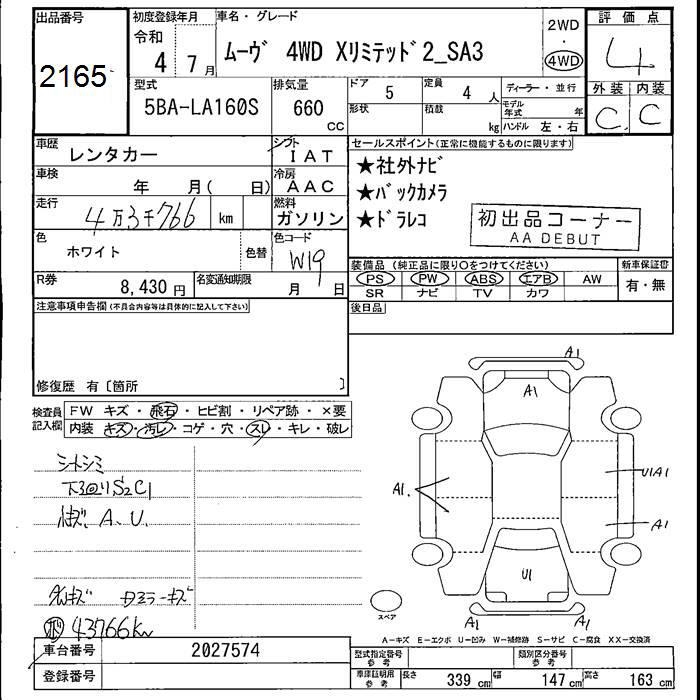 出品番号
2165
初度登録年月
令和
4 7月
車名・グレード
ムーヴ 4WD Xリミテッド2_SA3
2WD
・
4WD
評価点
4
外装 内装
C C
型式
5BA-LA160S
排気量
660
CC
ドア
5
定員
4 人
形状
積載
kg
ディーラー・並行
モデル年式 年
ハンドル 左・右
車歴
レンタカー
シフト
IAT
車検
年 月( 日)
冷房
AAC
走行
4万3千766 km
燃料
ガソリン
色
ホワイト
色替
色コード
W19
R券
8,430 円
名変通知期限
月 日
セールスポイント(正常に機能するものに限ります)
★社外ナビ
★バックカメラ
★ドラレコ
初出品コーナー
AA DEBUT
装備品(純正品に限り○をつけてください)
PS PW ABS エアB AW
SR ナビ TV カワ
新車保証書
有・無
後日品
注意事項申告欄(不具合内容等は具体的に記入して下さい)
修復歴 有〔箇所 〕
検査員
記入欄
FW キズ・飛石・ヒビ割・リペア跡・×要
内装 キズ・汚レ・コゲ・穴・スレ・キレ・破レ
シートシミ
下廻りS2C1
A、U
43766km
A1
A1
A1.
U1A1
A1
U1
A1
A1
スペア
A-キズ E-エクボ U-凹み W-補修跡 S-サビ C-腐食 XX-交換済
車台番号
2027574
登録番号
型式指定番号
参考
類別区分番号
参考
車庫証明用
参考
長さ 339 cm
幅 147 cm
高さ 163 cm